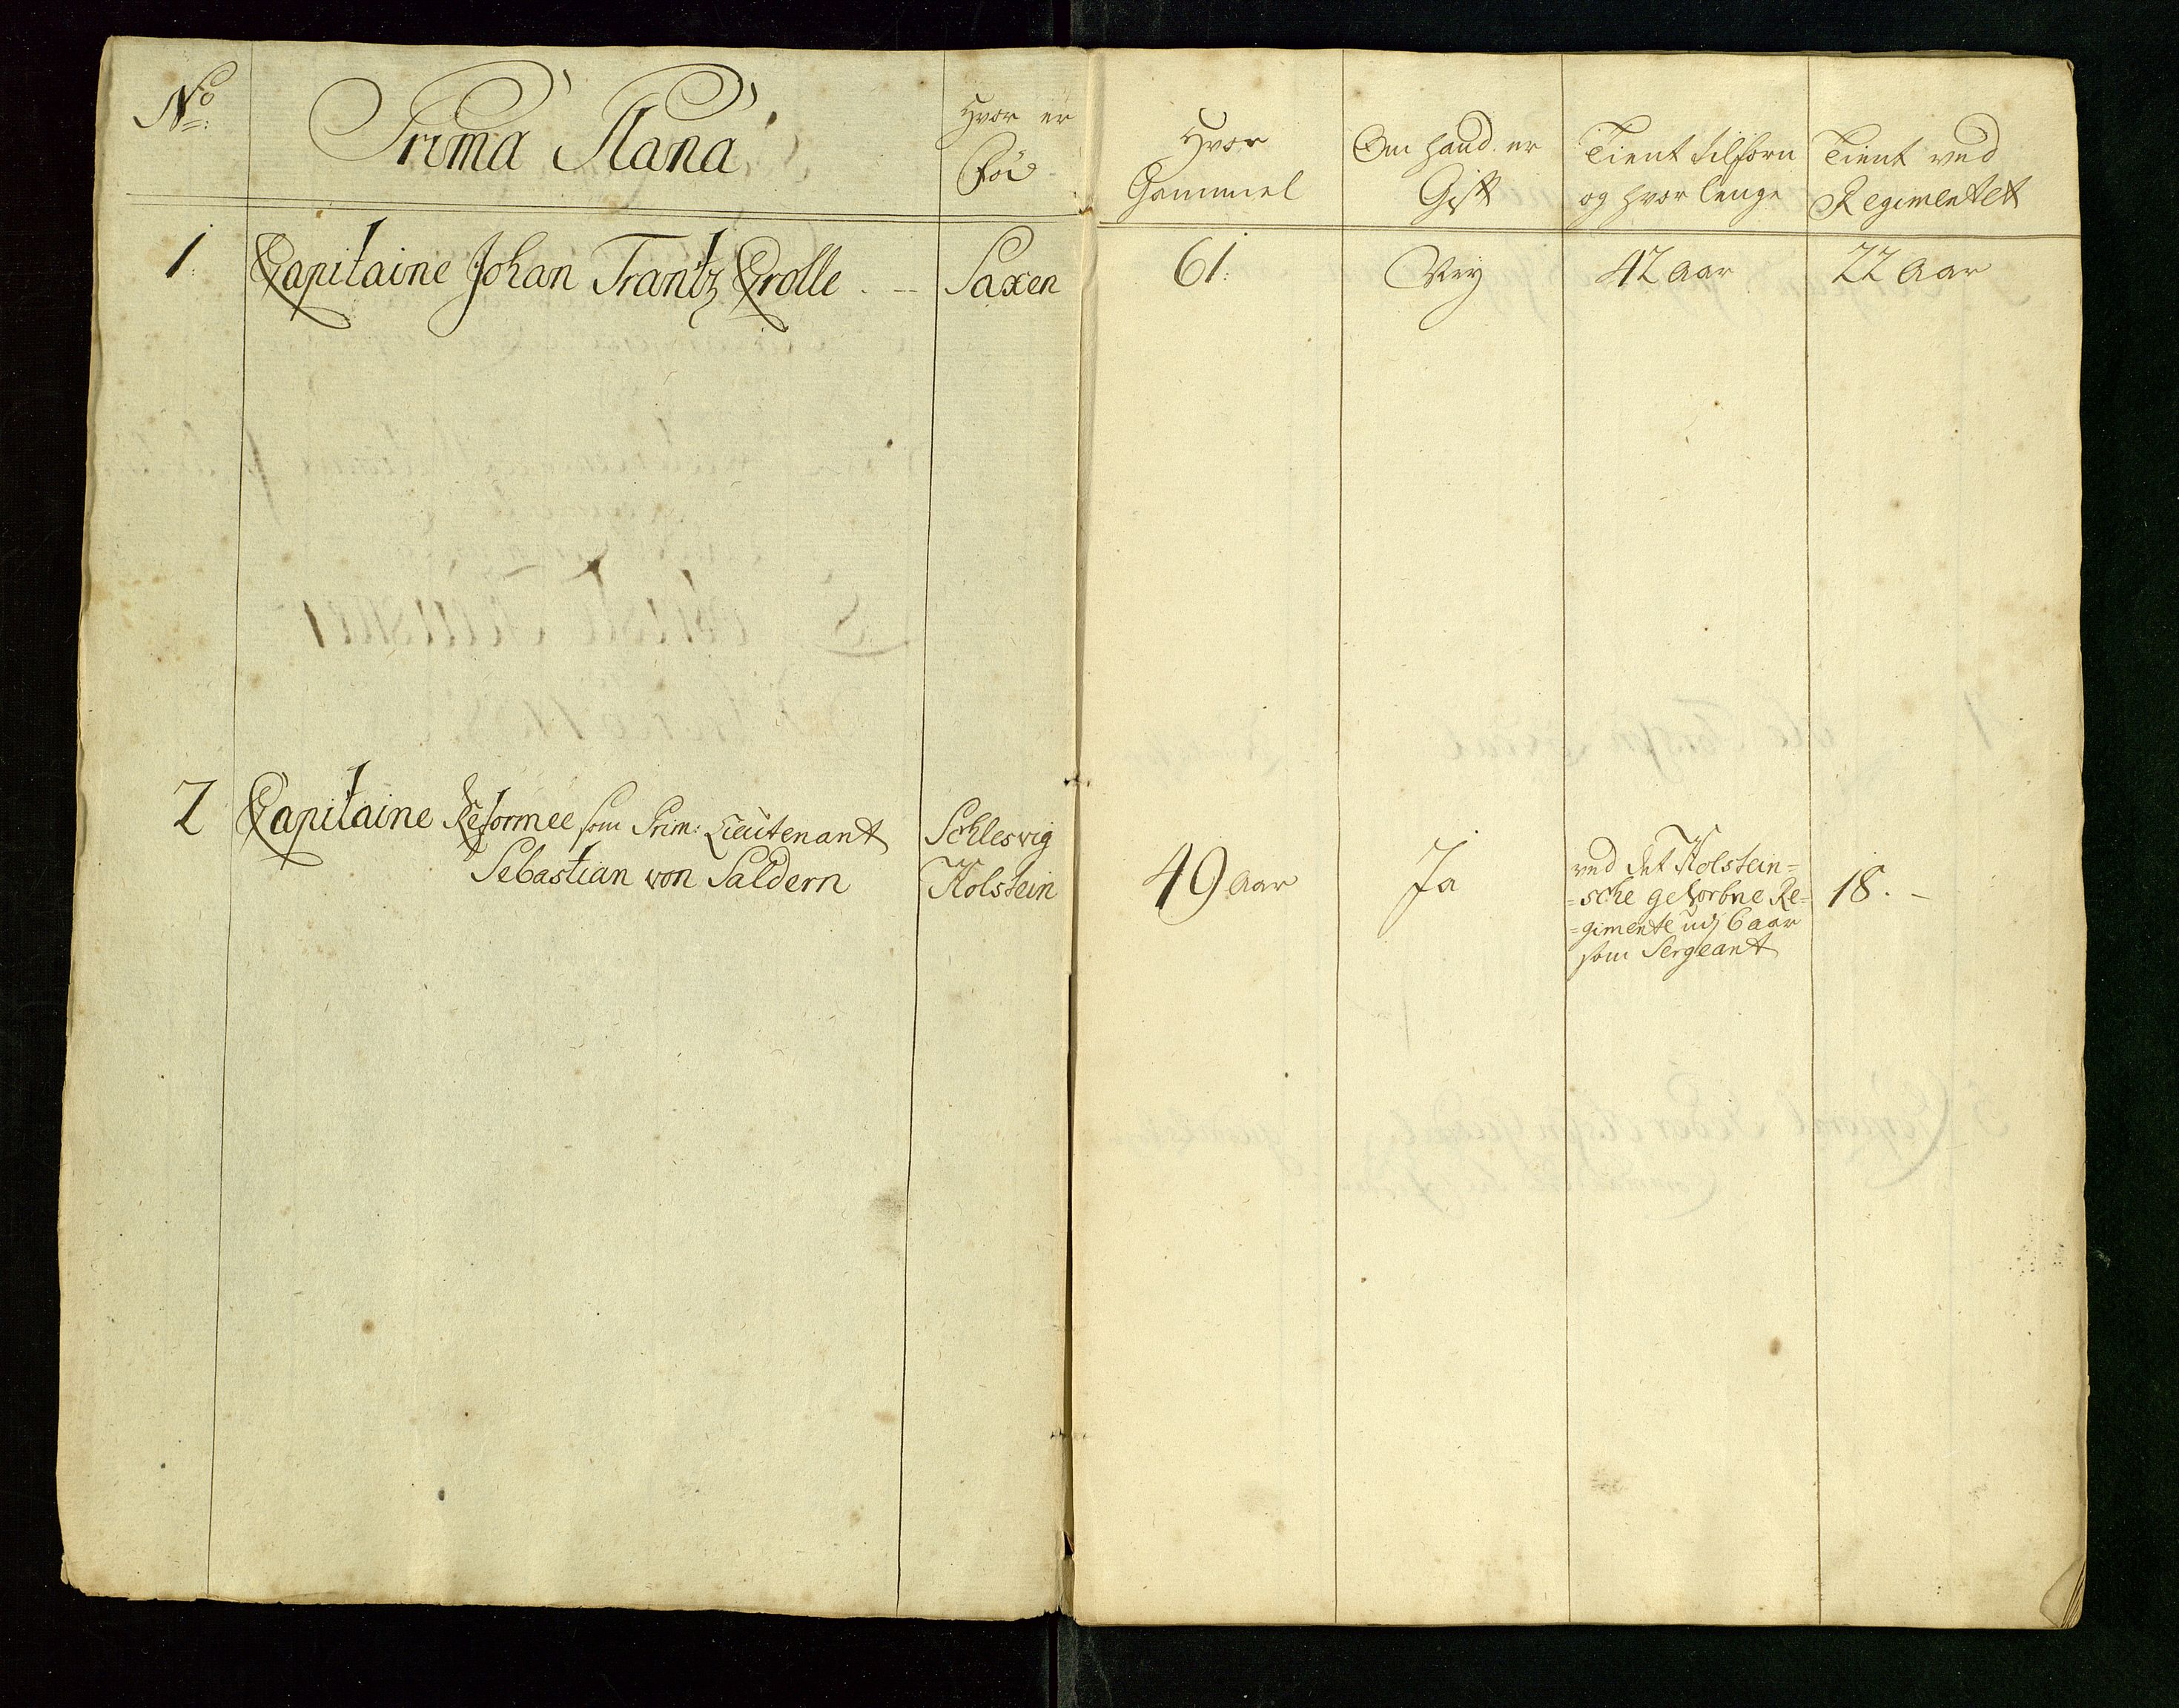 No:
Prima Plana
Hvor er
Fød
Hvor
Gammel
Om hand er
Gift
Tient tilforn
og hvor lenge
Tient ved
Regimentet
1. Capitaine Johan Frantz Crolle. — Saxen 61: Ney 42 aar 22 aar
2 Capitaine Reformee som Prim: Lieutenant
Sebastian von Saldern
Schlesvig
Holstein
49 aar
Ja
ved det Holstein=
=sche gevorbne Re=
=gimente udj 6 aar
som Sergeant
18. –